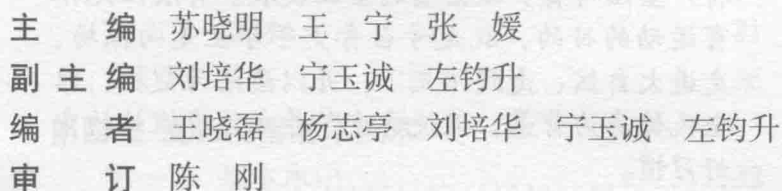 主 编 苏晓明 王 宁 张 媛
副主编 刘培华 宁玉诚 左钧升
编 者 王晓磊 杨志亭 刘培华 宁玉诚 左钧升
审 订 陈 刚